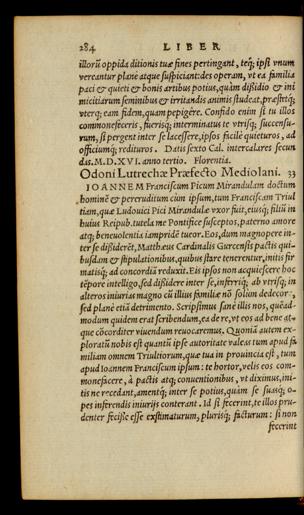 284 LIBER
illorũ oppida ditionis tuæ fines pertingant, teq́; ipsi vnum
vereantur planè atque suspiciant: des operam, vt ea familia
paci & quieti & bonis artibus potius, quàm dißidio & ini
micitiarum seminibus & irritandis animis studeat, præstetq́;
vterq; eam fidem, quam pepigêre. Confido enim si tu illos
commonefeceris, fuerisq́; interminatus te vtrisq́; succensu-
rum, si pergent inter se lacessere, ipsos facilè quieturos, ad
officiumq́; redituros. Datis sexto Cal. intercalares secun
das. M.D.XVI. anno tertio. Florentia.
Odoni Lutrechæ Præfecto Mediolani. 33
IOANNEM Franciscum Picum Mirandulam doctum
hominẽ & pereruditum cùm ipsum, tum Franciscam Triul
tiam, quæ Ludouici Pici Mirandulæ vxor fuit, eiusq́; filiũ in
huius Reipub. tutela me Pontifice susceptos, paterno amore
atq; beneuolentia lampridè tueor. Eos, dum magnopere in-
ter se dißiderẽt, Matthæus Cardinalis Gurcensis pactis qui-
busdam & stipulationibus, quibus stare tenerentur, initis fir
matisq́; ad concordiã reduxit. Eis ipsos non acquiescere hoc
tẽpore intelligo, sed dißidere inter se, inferriq́; ab vtrisq́; in
alteros iniurias magno cũ illius familiæ nõ solùm dedecore,
sed planè etiã detrimento. Scripsimus sanè illis nos, quẽad-
modum quidem erat scribendum, ea de re, vt eos ad bene at-
que cõcorditer viuendum reuocaremus. Quoniã autem ex-
ploratũ nobis est quantũ ipse autoritate valeas tum apud fa
miliam omnem Triultiorum, quæ tua in prouincia est, tum
apud Ioannem Franciscum ipsum: te hortor, velis eos com-
monefacere, à pactis atq; conuentionibus, vt diximus, ini-
tis ne recedant, amentq́; inter se potius, quàm se suasq́; o-
pes inferendis iniurijs conterant. Id si fecerint, te illos pru-
denter fecisse esse existimaturum, plurisq́; facturum: si non
fecerint